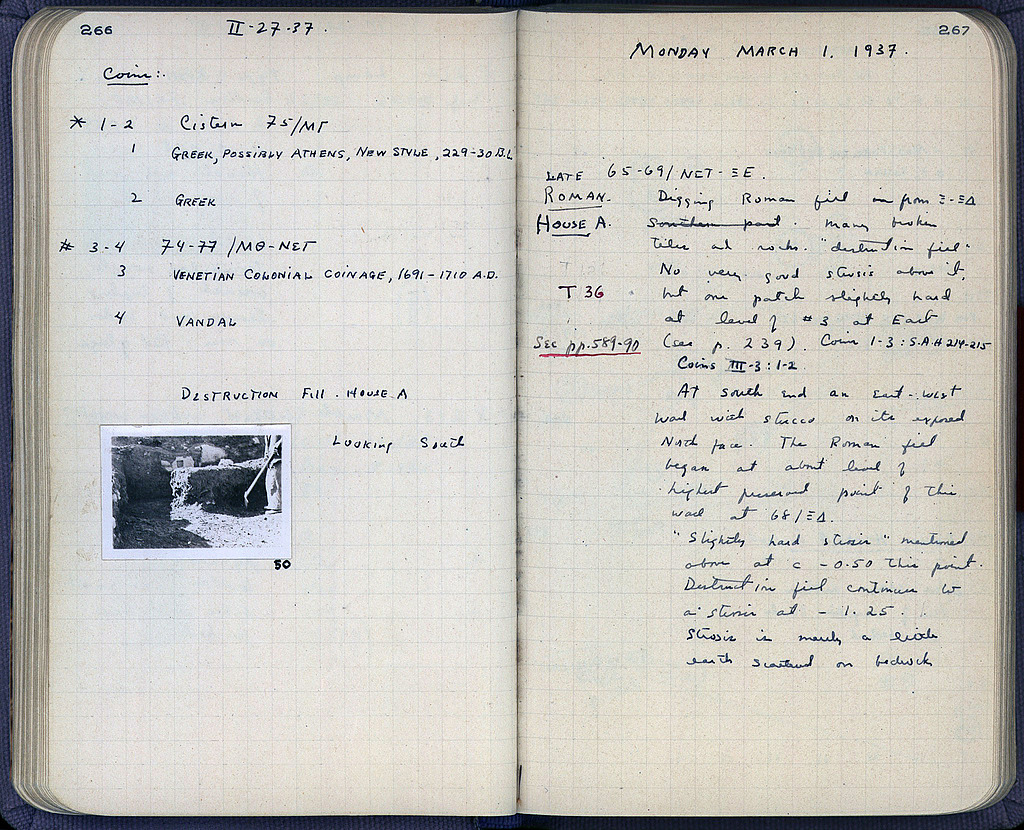 266
II-27-37.
Coins:
* 1-2 Cistern 75/ΜΓ
1 GREEK, POSSIBLY ATHENS, NEW STYLE, 229-30 B.C.
2 GREEK
# 3-4 74-77/ΜΘ-ΝΕΤ
3 VENETIAN COLONIAL COINAGE, 1691-1710 A.D.
4 VANDAL
DESTRUCTION Fill. HOUSE A
Looking South
50
267
MONDAY MARCH 1, 1937.
LATE 65-69/ΝΕΤ-ΞΕ.
ROMAN. Digging Roman fill in from Ξ-ΞΔ
HOUSE A. Southern part. Many broken
tiles and rocks. "destruction fill"
No very good strosis above it,
T 36 but one patch slightly hard
at level of #3 at East
See pp. 589-90 (see p. 239). Coins 1-3: S.A.H 214-215
Coins III-3: 1-2.
At south end an East-West
wall with stucco on its exposed
North face. The Roman fill
began at about level of
highest preserved point of this
wall at 68/ΞΔ.
"Slightly hard strosis" mentioned
above at c -0.50 this point.
Destruction fill continues to
a strosis at -1.25.
Strosis is merely a little
earth scattered on bedrock